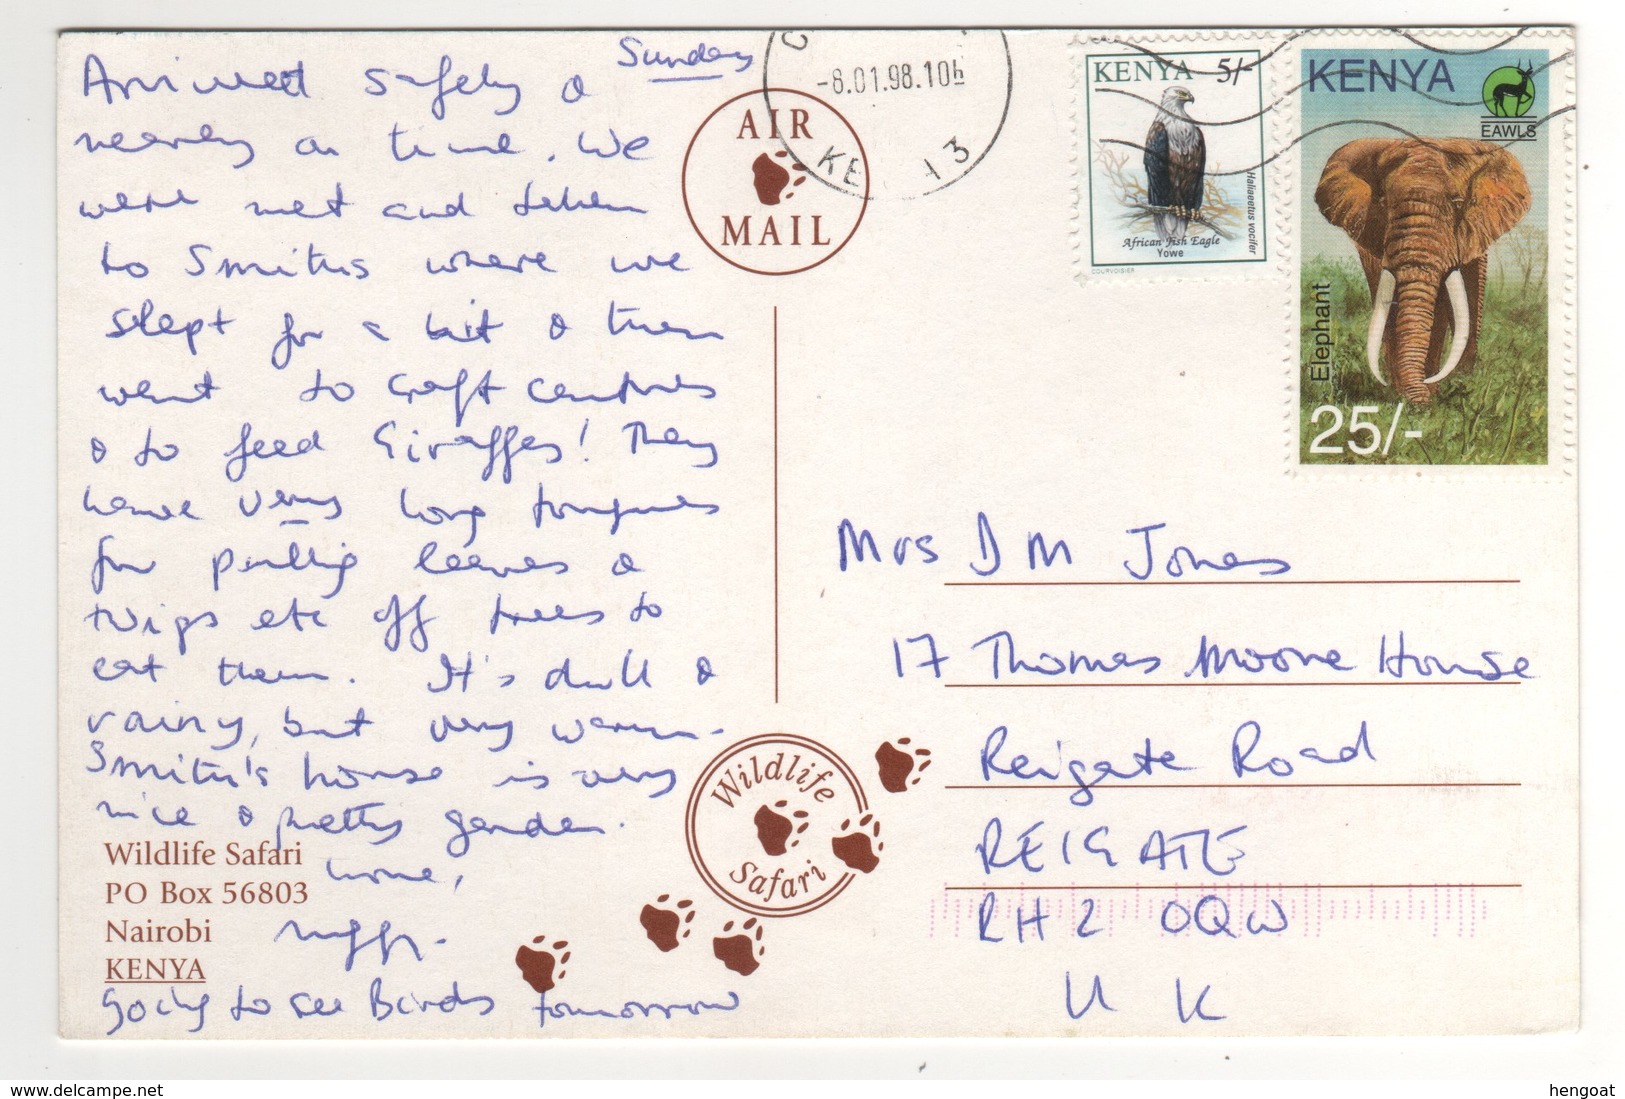 Sunday
Arrived safely &
nearly on time. We
were met and taken
to Smiths where we
slept for a bit & then
went to craft centres
& to feed Giraffes! They
have very long tongues
for pulling leaves &
twigs etc off trees to
eat them. It's dull &
rainy, but very warm.
Smith's house is very
nice & pretty garden.
love,
going to see Birds tomorrow
Wildlife Safari
PO Box 56803
Nairobi
KENYA
AIR
MAIL
-8.01.98.10h
KENYA 5/-
Haliaeetus vocifer
African Fish Eagle
Yowe
COURVOISIER
KENYA
EAWLS
Elephant
25/-
Mrs D M Jones
17 Thomas Moore House
Reigate Road
REIGATE
RH2 0QW
U K
Wildlife
Safari
delcampe.net
hengoat